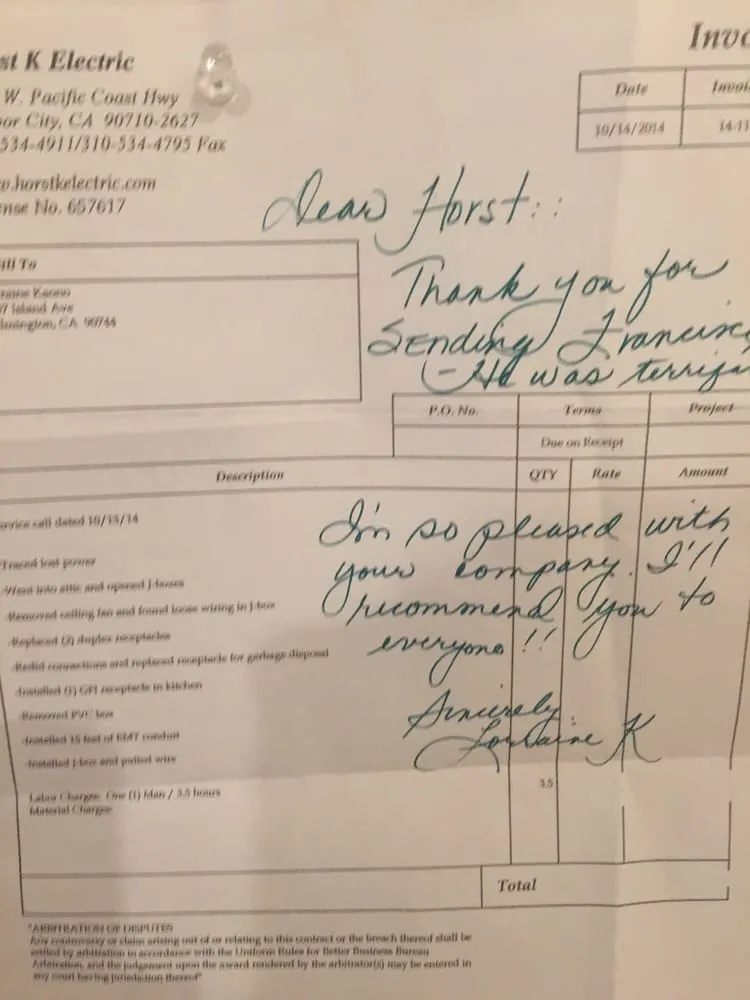 st K Electric
Invo
W. Pacific Coast Hwy
or City, CA 90710-2627
534-4911/310-534-4795 Fax
w.horstkelectric.com
nse No. 657617
Date
Invoi
10/14/2014
14-11
Dear Horst::
Thank you for
Sending Francisc
- He was terrifi
ill To
Island Ave
mington, CA 90744
P.O. No.
Terms
Project
Due on Receipt
Description
QTY
Rate
Amount
ervice call dated 10/13/14
Traced lost power
Went into attic and opened j-boxes
Removed ceiling fan and found loose wiring in j-box
Replaced (2) duplex receptacles
Redid connections and replaced receptacle for garbage disposal
Installed (1) GFI receptacle in kitchen
Removed PVC box
Installed 15 feet of EMT conduit
Installed j-box and pulled wire
I'm so pleased with
your company. I'll
recommend you to
everyone!!
Sincerely,
Lorraine K
Labor Charges: One (1) Man / 3.5 hours
3.5
Material Charges:
Total
"ARBITRATION OF DISPUTES
Any controversy or claim arising out of or relating to this contract or the breach thereof shall be
settled by arbitration in accordance with the Uniform Rules for Better Business Bureau
Arbitration, and the judgement upon the award rendered by the arbitrator(s) may be entered in
any court having jurisdiction thereof"